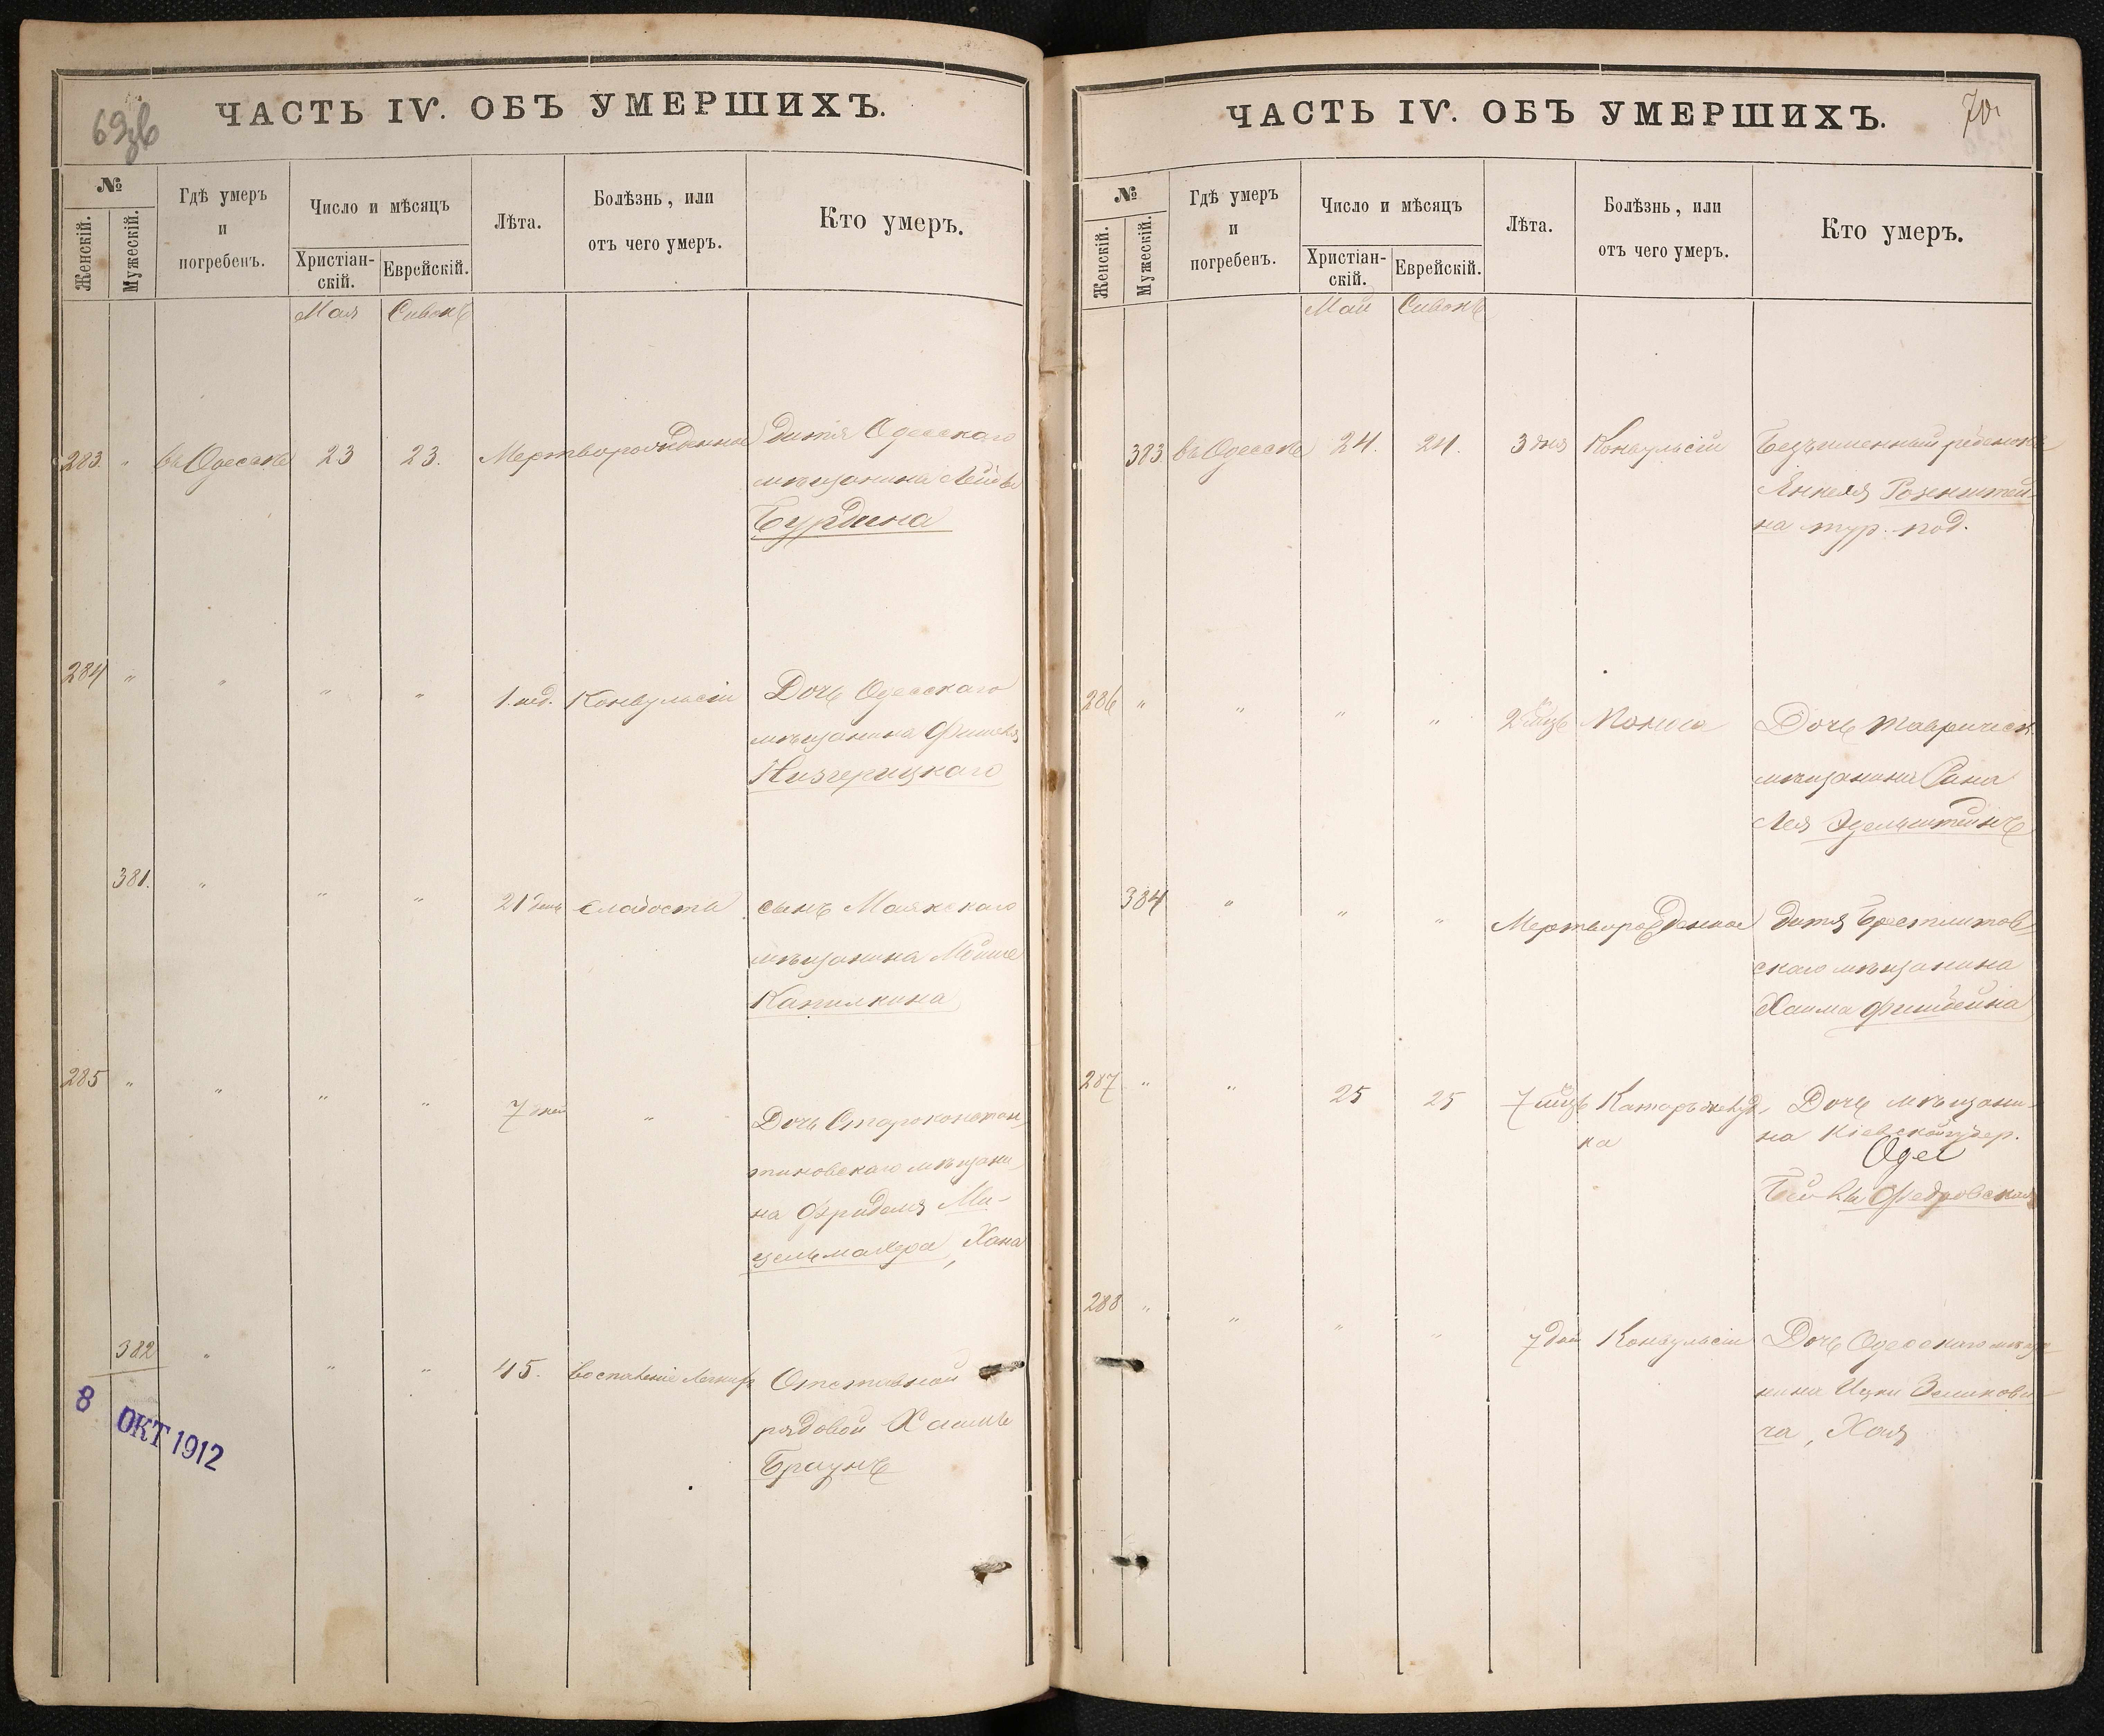 69 зв
ЧАСТЬ IV. ОБЪ УМЕРШИХЪ.
№
Женскій.
Мужескій.
Гдѣ умеръ
и
погребенъ.
Число и мѣсяцъ
Христіан-
скій.
Еврейскій.
Лѣта.
Болѣзнь, или
отъ чего умеръ.
Кто умеръ.
Мая Сивонъ
283 " въ Одессѣ 23 23. Мертворожденное дитя Одесского
мѣщанина Лейбы
Бурдина
284 " " " " 1. нед. Конвульсіи Дочь Одесскаго
мѣщанина Фишеля
381. " " " 21 день слабость сынъ Маякскаго
мѣщанина
Капилкина
285 " " " " 7 дней " Дочь Староконстан
тиновскаго мѣщани
на Фриделя Ми-
цельмахера, Хана
382 " " " 45. воспаленіе легкихъ Отставной
рядовой Хаимъ
Браунъ
8 ОКТ 1912
70
ЧАСТЬ IV. ОБЪ УМЕРШИХЪ.
№
Женскій.
Мужескій.
Гдѣ умеръ
и
погребенъ.
Число и мѣсяцъ
Христіан-
скій.
Еврейскій.
Лѣта.
Болѣзнь, или
отъ чего умеръ.
Кто умеръ.
Май Сивонъ
383 въ Одессѣ 24. 24. 3 дня Конвульсіи Безъименный ребенокъ
Янкеля Рохинштей-
на тур. под.
286 " " " " 2 мѣц Дочь Тавричск.
мѣщанина
Лея Эдельштейнъ
384 " " " Мертворожденное дитя Брестлитов
скаго мѣщанина
Хаима Фишбейна
287 " " 25 25 7 мѣц Катаръ желуд- Дочь мѣщани-
ка на Кіевской губер.
Одел
Федровская
288 " " " " 7 дней Конвульсіи Дочь Одесскаго мѣща
нина Ицки Зеликови-
ча, Хая